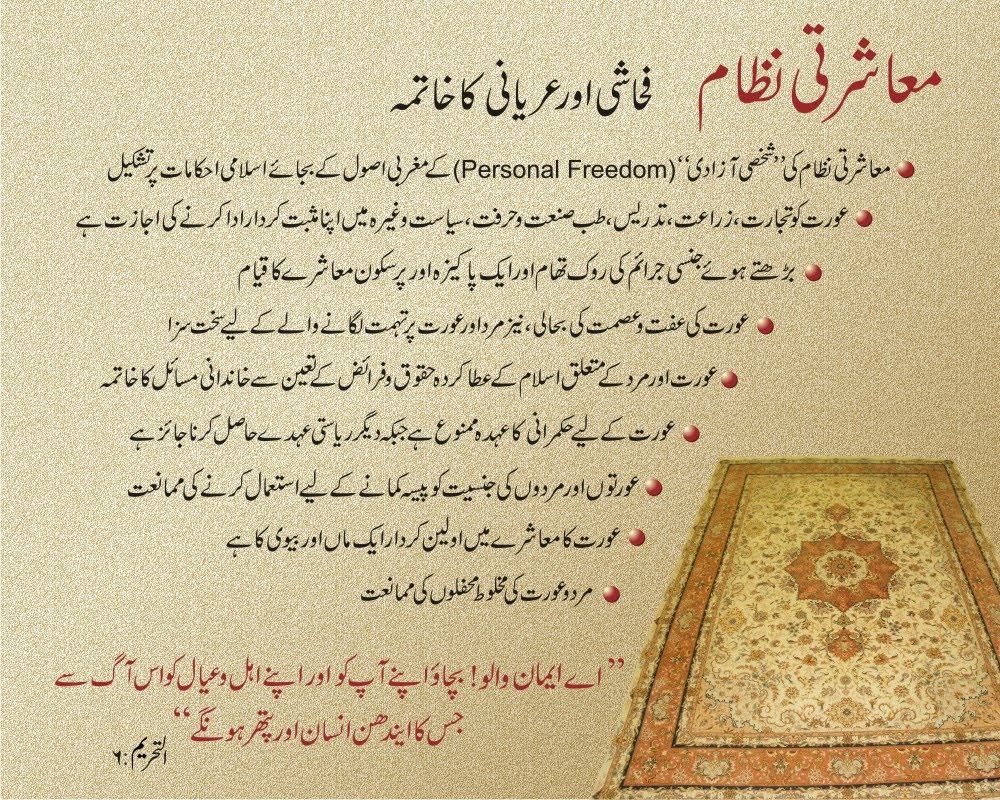 معاشرتی نظام فحاشی اور عریانی کا خاتمہ
معاشرتی نظام کی ’’شخصی آزادی‘‘ (Personal Freedom) کے مغربی اصول کے بجائے اسلامی احکامات پر تشکیل
عورت کو تجارت، زراعت، تدریس، طب صنعت و حرفت، سیاست وغیرہ میں اپنا مثبت کردار ادا کرنے کی اجازت ہے
بڑھتے ہوئے جنسی جرائم کی روک تھام اور ایک پاکیزہ اور پرسکون معاشرے کا قیام
عورت کی عفت و عصمت کی بحالی، نیز مرد اور عورت پر تہمت لگانے والے کے لیے سخت سزا
عورت اور مرد کے متعلق اسلام کے عطا کردہ حقوق و فرائض کے تعین سے خاندانی مسائل کا خاتمہ
عورت کے لیے حکمرانی کا عہدہ ممنوع ہے جبکہ دیگر ریاستی عہدے حاصل کرنا جائز ہے
عورتوں اور مردوں کی جنسیت کو پیسہ کمانے کے لیے استعمال کرنے کی ممانعت
عورت کا معاشرے میں اولین کردار ایک ماں اور بیوی کا ہے
مرد و عورت کی مخلوط محفلوں کی ممانعت
’’اے ایمان والو! بچاؤ اپنے آپ کو اور اپنے اہل و عیال کو اس آگ سے
جس کا ایندھن انسان اور پتھر ہونگے‘‘
التحریم:۶